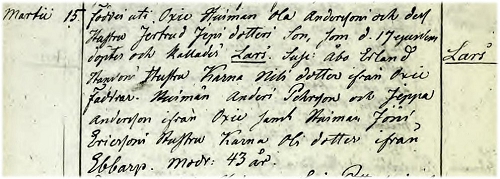 Martii 15 Föddes uti Oxie Huusman Ola Andersson och dess
Hustru Jertrud Jeps dotters Son, som d. 17 ejusdem
döptes och kallades Lars. Susc: Åbo Erland
Hanssons Hustru Karna Nils dotter ifrån Oxie Lars
Faddrar. Husmän Anders Pehrsson och Jeppa
Andersson ifrån Oxie samt Husman Jöns
Ericssons Hustru Karna Ols dotter ifrån
Ebbarp. Modr: 43 år.